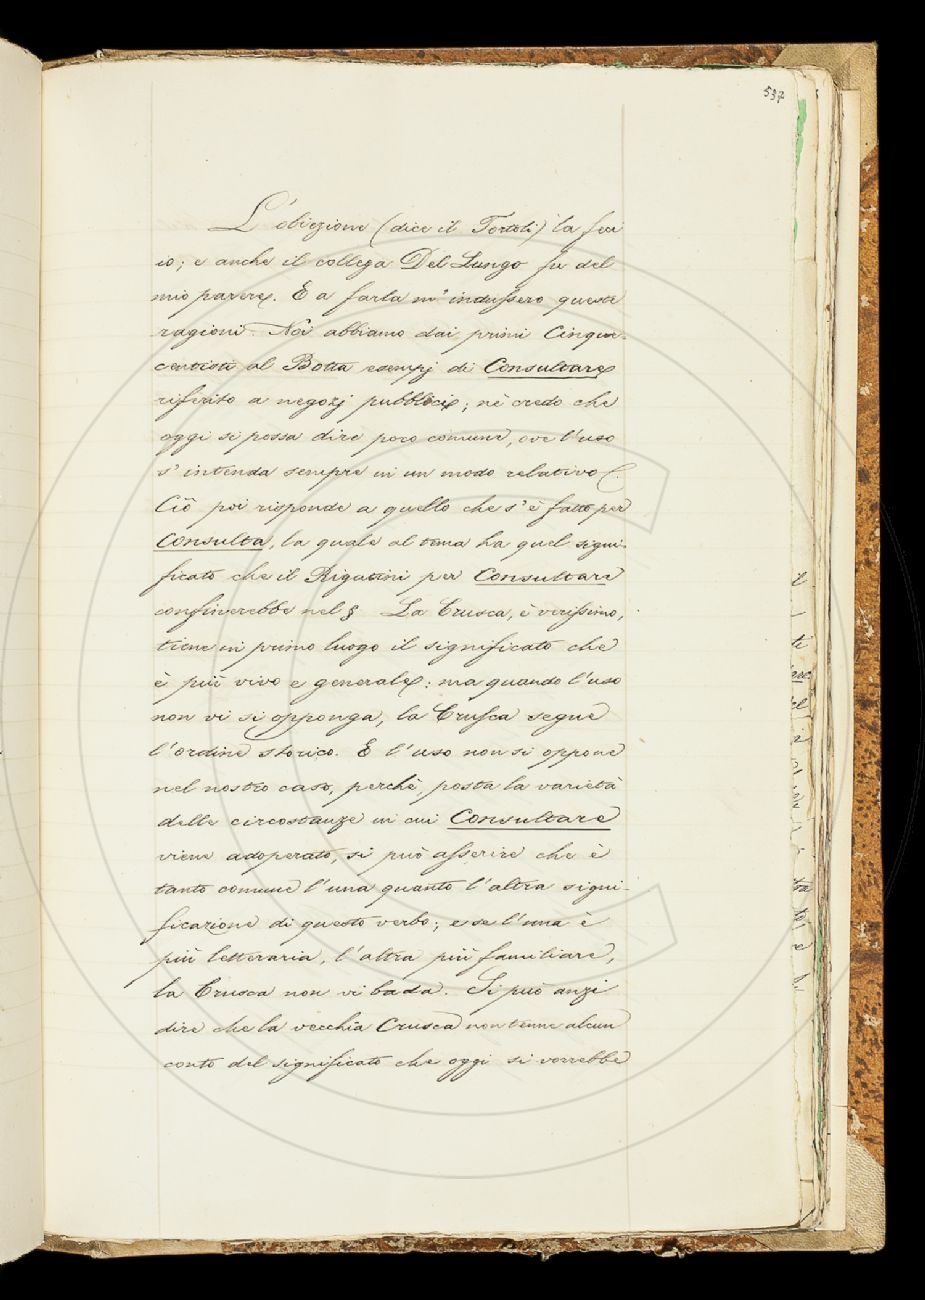 537
L'obiezione (dice il Tortoli) la feci
io; e anche il collega Del Lungo fu del
mio parere. E a farla m'indussero queste
ragioni. Noi abbiamo dai primi Cinque-
centisti al Botta esempj di Consultare
riferito a negozj pubblici; nè credo che
oggi si possa dire poco comune, ove l'uso
s'intenda sempre in un modo relativo.
Ciò poi risponde a quello che s'è fatto per
Consulta, la quale al tema ha quel signi-
ficato che il Rigutini per Consultare
confinerebbe nel §. La Crusca, è verissimo,
tiene in primo luogo il significato che
è più vivo e generale: ma quando l'uso
non vi si opponga, la Crusca segue
l'ordine storico. E l'uso non si oppone
nel nostro caso, perchè, posta la varietà
delle circostanze in cui Consultare
viene adoperato, si può asserire che è
tanto comune l'una quanto l'altra signi-
ficazione di questo verbo; e se l'una è
più letteraria, l'altra più familiare,
la Crusca non vi bada. Si può anzi
dire che la vecchia Crusca non tenne alcun
conto del significato che oggi si vorrebbe